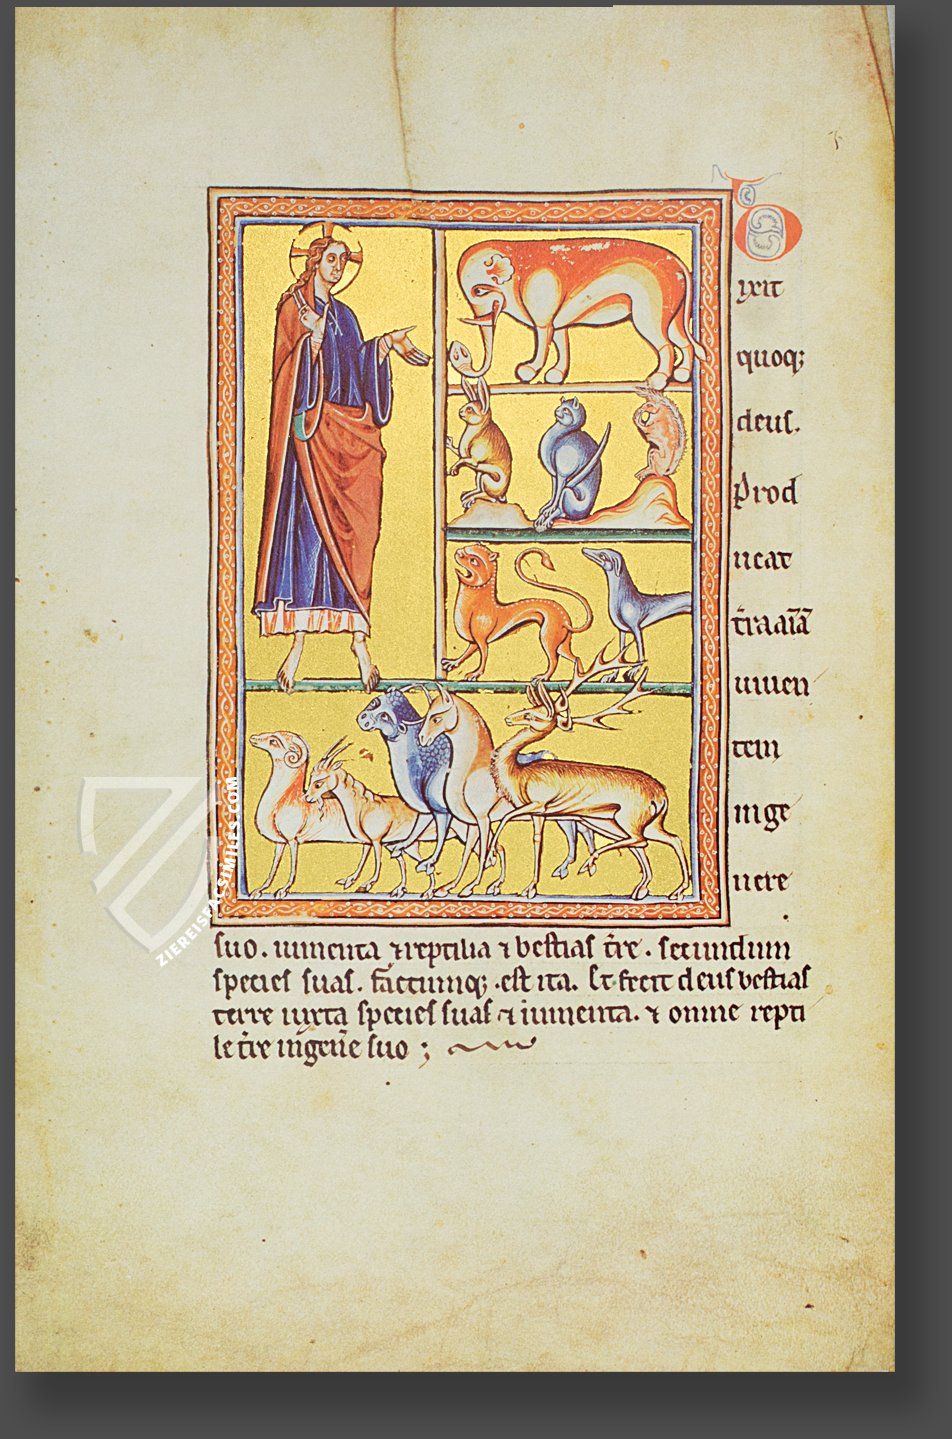 D
ixit
quoq;
deus.
Prod
ucat
t̄ra aīā
uiuen
tem
in ge
nere
suo. iumenta ⁊ reptilia ⁊ bestias t̄re. secundum
species suas. factumq; est ita. Et fecit deus bestias
terre iuxta species suas ⁊ iumenta. ⁊ omne repti
le t̄re in gen̄e suo ;
ZIEREISFACSIMILES.COM